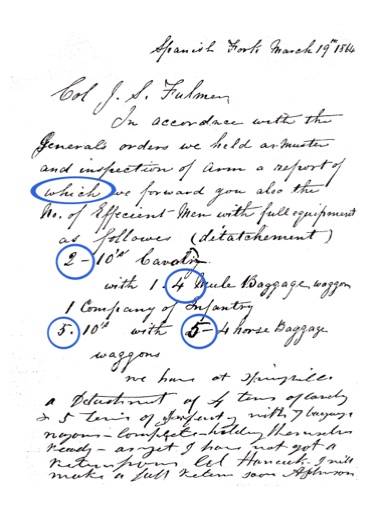 Spanish Fork March 19th 1864
Col J. S. Fulmer,
In accordance with the
Generals orders we held a muster
and inspection of Arm a report of
which we forward you also the
No. of Effecient Men with full equipment
as followes (ditatchement)
2 - 10's Cavalry
with 1 - 4 Mule Baggage waggon
1 Company of Infantry
5. 10's with 5 - 4 horse Baggage
waggons
we have at Springville
a Detachment of 4 tens of
& 5 tens of Infantry with 7 baggage
wagons - complete - holding themselves
ready - as yet I have not got a
return from Col Hancock I will
make a full return soon